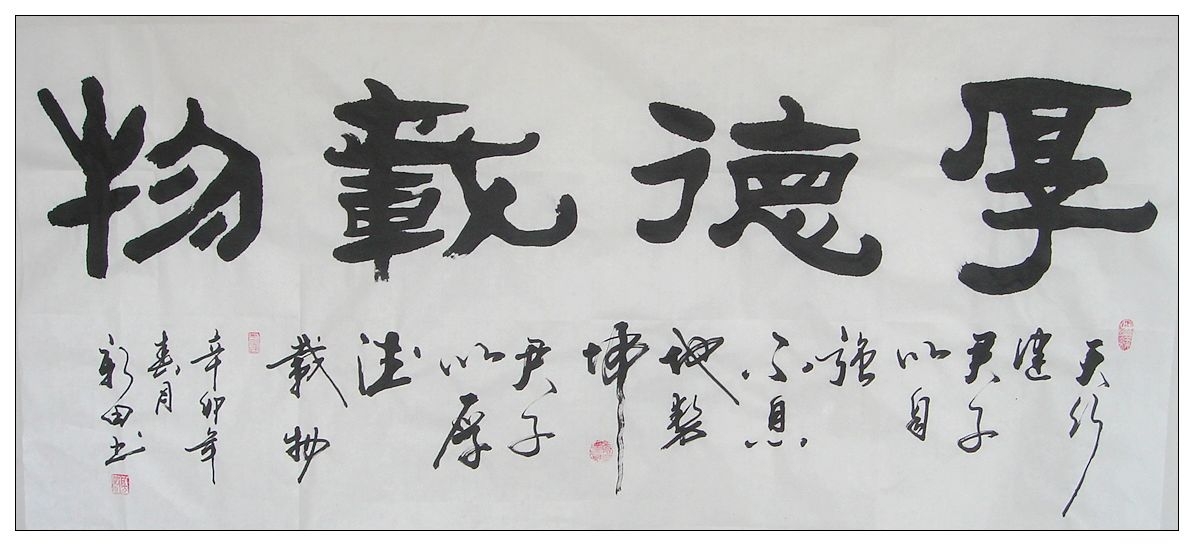 厚德載物
天行
健
君子
以自
強
不息
地势
坤
君子
以厚
德
載物
辛卯年
春月
新田书